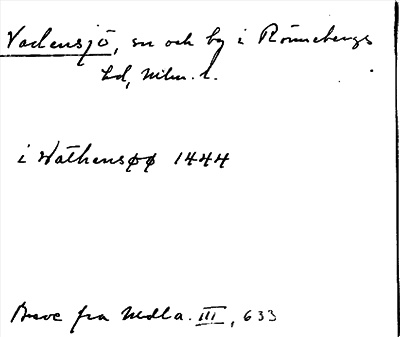 Vadensjö, sn och by i Rönnebergs
hd, Mlm. l.
i Wathensøø 1444
Breve fra Medla. III, 633